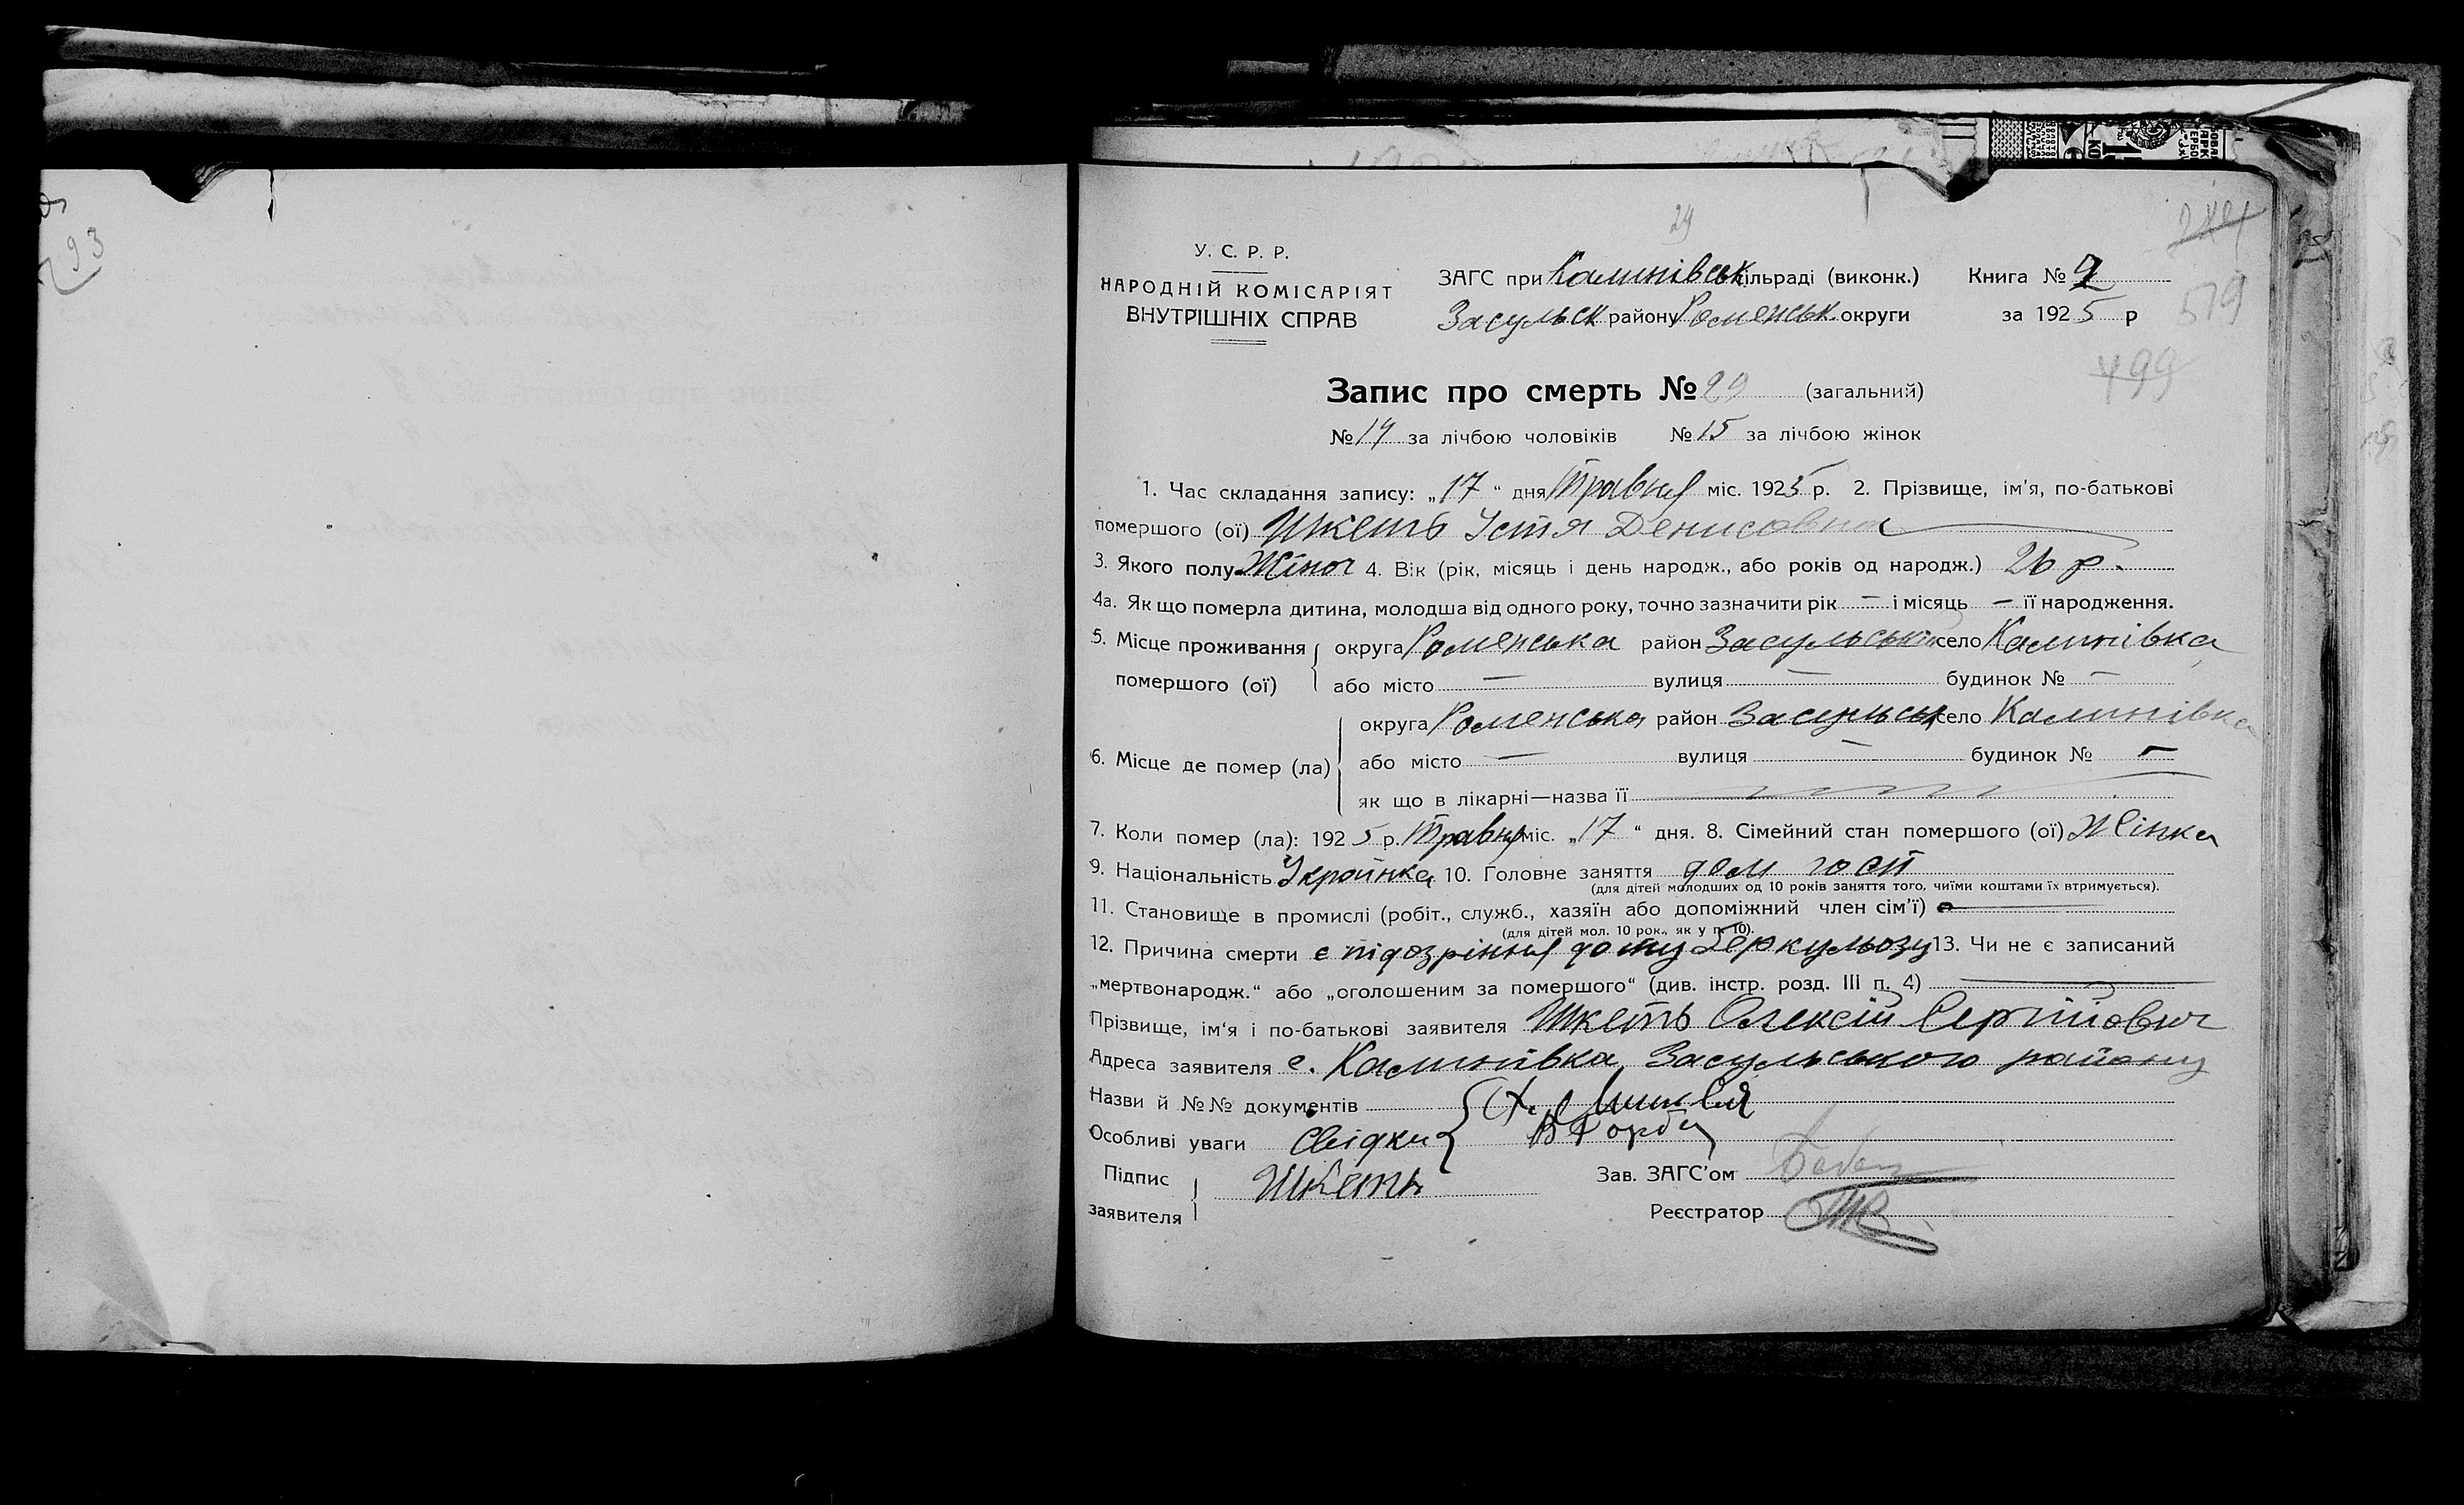 93
29
У. С. Р. Р.
НАРОДНІЙ КОМІСАРІЯТ
ВНУТРІШНІХ СПРАВ
ЗАГС при Калинівськ сільраді (виконк.) Книга № 2
Засульск району Роменськ. округи за 1925 р
519
499
Запис про смерть № 29 (загальний)
№ 14 за лічбою чоловіків № 15 за лічбою жінок
1. Час складання запису: „17“ дня Травня міс. 1925 р. 2. Прізвище, ім'я, по-батькові
помершого (ої) Шкеть Устя Денисовна
3. Якого полу Жіноч 4. Вік (рік, місяць і день народж., або років од народж.) 26 р.
4а. Як що померла дитина, молодша від одного року, точно зазначити рік — і місяць — її народження.
5. Місце проживання помершого (ої) округа Роменська район Засульський село Калинівка
або місто — вулиця — будинок № —
6. Місце де помер (ла) округа Роменська район Засульськ село Калинівка
або місто — вулиця — будинок № —
як що в лікарні—назва її
7. Коли помер (ла): 1925 р. Травня міс. „17“ дня. 8. Сімейний стан помершого (ої) Жінка
9. Національність Українка 10. Головне заняття дом госп
(для дітей молодших од 10 років заняття того, чиїми коштами їх втримується).
11. Становище в промислі (робіт., служб., хазяїн або допоміжний член сім'ї) —
(для дітей мол. 10 рок., як у п. 10).
12. Причина смерти є підозріння до туберкульозу 13. Чи не є записаний
„мертвонародж.“ або „оголошеним за помершого“ (див. інстр. розд. III п. 4) —
Прізвище, ім'я і по-батькові заявителя Шкеть Олексій Сергійович
Адреса заявителя с. Калинівка, Засульського району
Назви й №№ документів
Особливі уваги Свідки В Горба
Підпис заявителя Шкеть Зав. ЗАГС'ом
Реєстратор